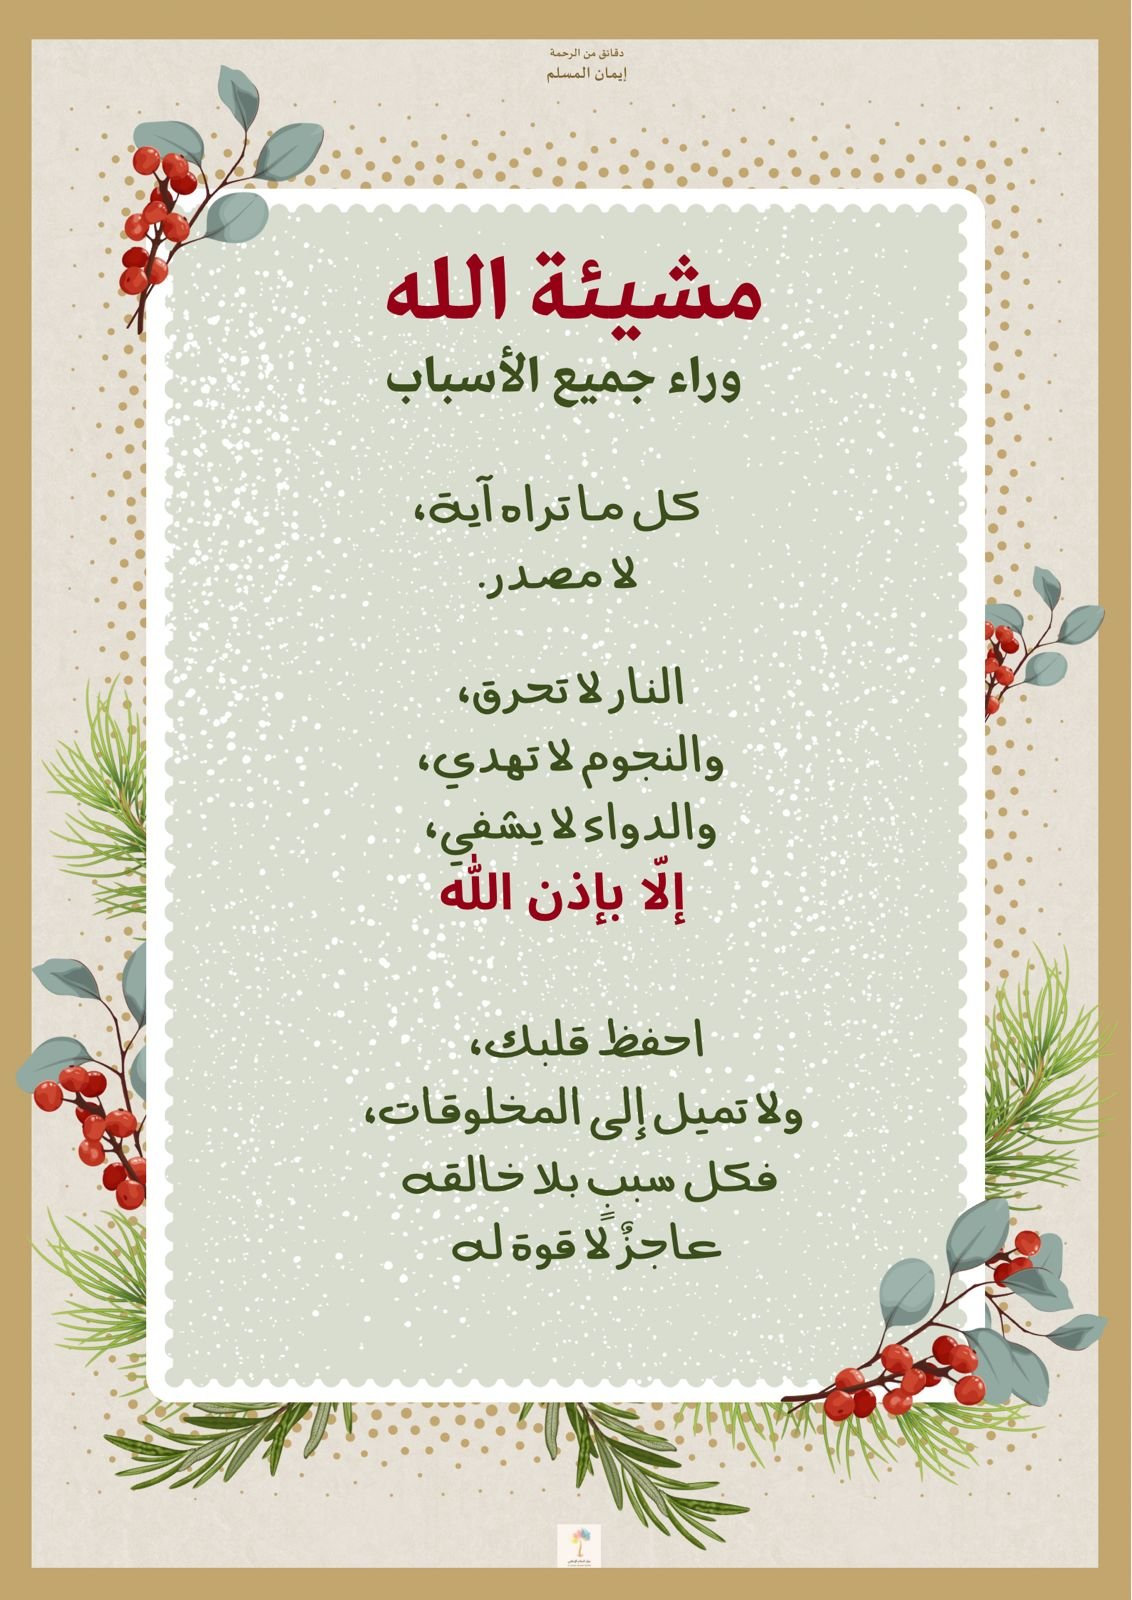 دقائق من الرحمة
إيمان المسلم
مشيئة الله
وراء جميع الأسباب
كل ما تراه آية،
لا مصدر.
النار لا تحرق،
والنجوم لا تهدي،
والدواء لا يشفي،
إلّا بإذن اللّٰه
احفظ قلبك،
ولا تميل إلى المخلوقات،
فكل سببٍ بلا خالقه
عاجزٌ لًا قوة له